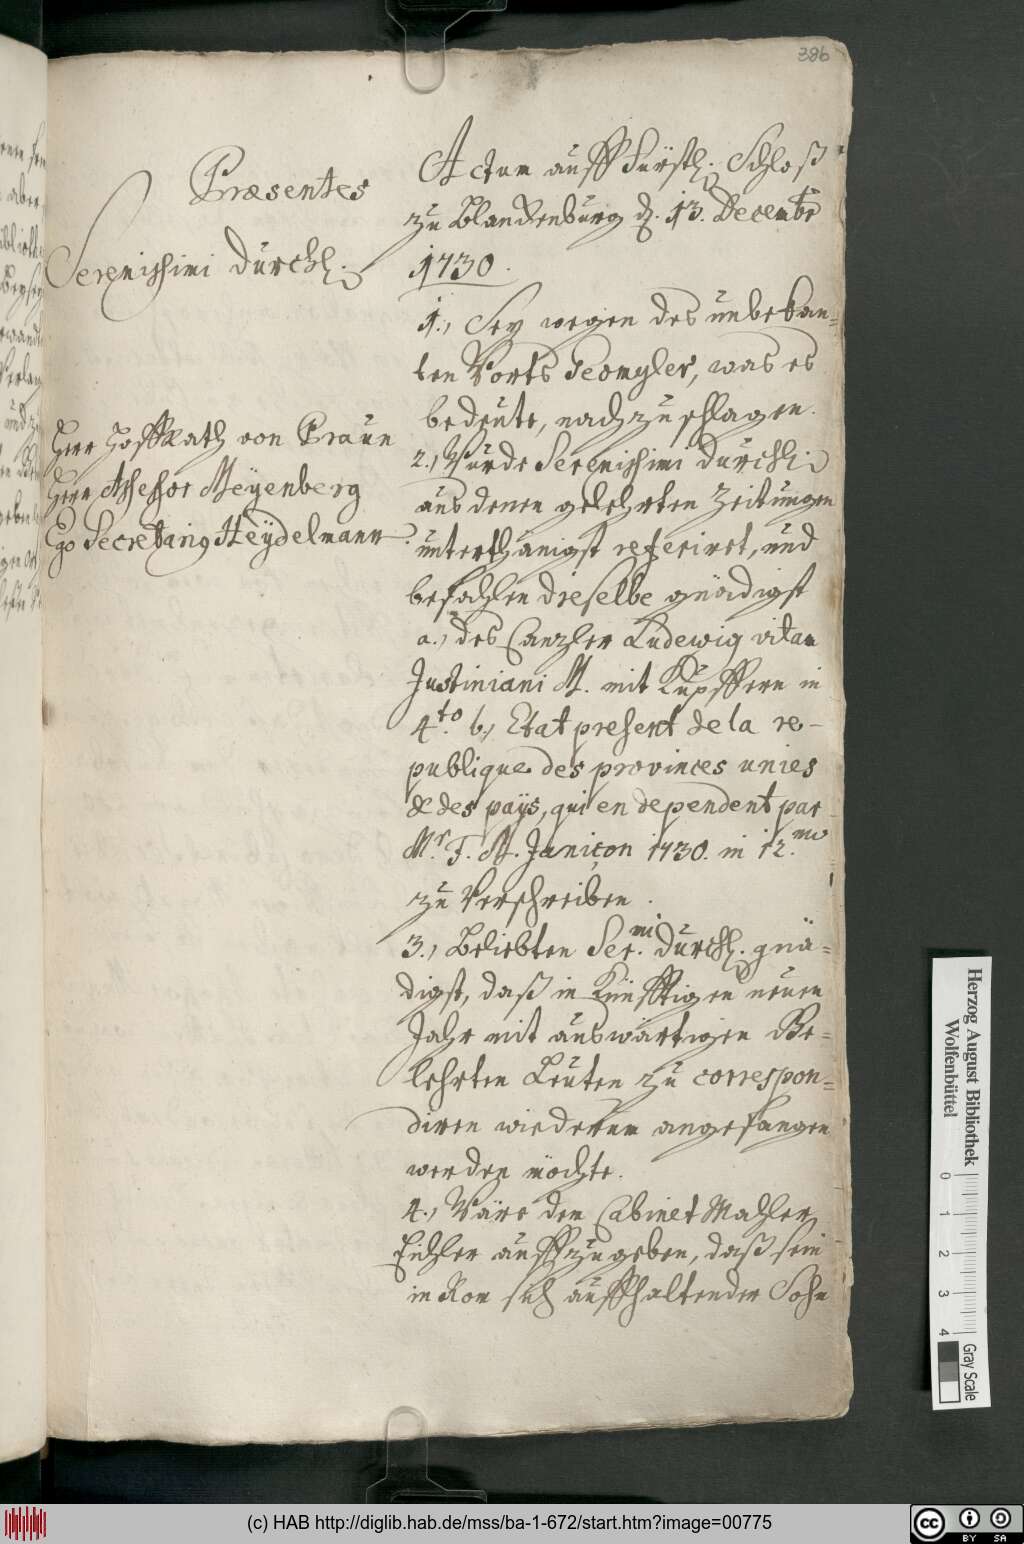 386
Præsentes
Serenissimi Durchl.
Herr Hoffrath von Praun
Herr Assessor Meyenberg
Ego Secretarius Heydelmann.
Actum auff Fürstl. Schloß
zu Blanckenburg d. 13. Decembr
1730.
1., Sey wegen des unbekan=
ten Worts Teomyler, was es
bedeute, nachzuschlagen.
2., Wurde Serenissimi Durchl.
aus denen gelehrten Zeitungen
unterthänigst referiret, und
befahlen dieselbe gnädigst
a., des Canzler Ludewig vitam
Justiniani M. mit Kupffern in
4.to b., Etat present de la re-
publique des provinces unies
& des paÿs, qui en dependent par
Mr. F. M. Janiçon 1730. in 12.mo
zu verschreiben.
3., Beliebten Ser.mi Durchl. gnä=
digst, daß in Künfftigen neuen
Jahr mit auswärtigen Ge=
lehrten Leuten zu correspon=
diren wiederum angefangen
werden möchte.
4., Wäre dem Cabinet Mahler
Eichler auffzugeben, daß sein
in Rom sich auffhaltender Sohn
Herzog August Bibliothek
Wolfenbüttel
0 1 2 3 4
Gray Scale
(c) HAB http://diglib.hab.de/mss/ba-1-672/start.htm?image=00775
cc BY SA